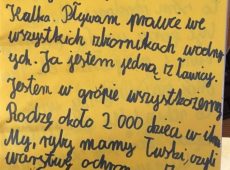 Halka. Pływam prawie we
wszystkich zbiornikach wodny
ych. Ja jestem jedną z Ławicy.
Jestem w grópie wszystkożerny
Rodzę około 2 000 dzieci w
My, ryby mamy Łuski, czyli
warstwę ochron